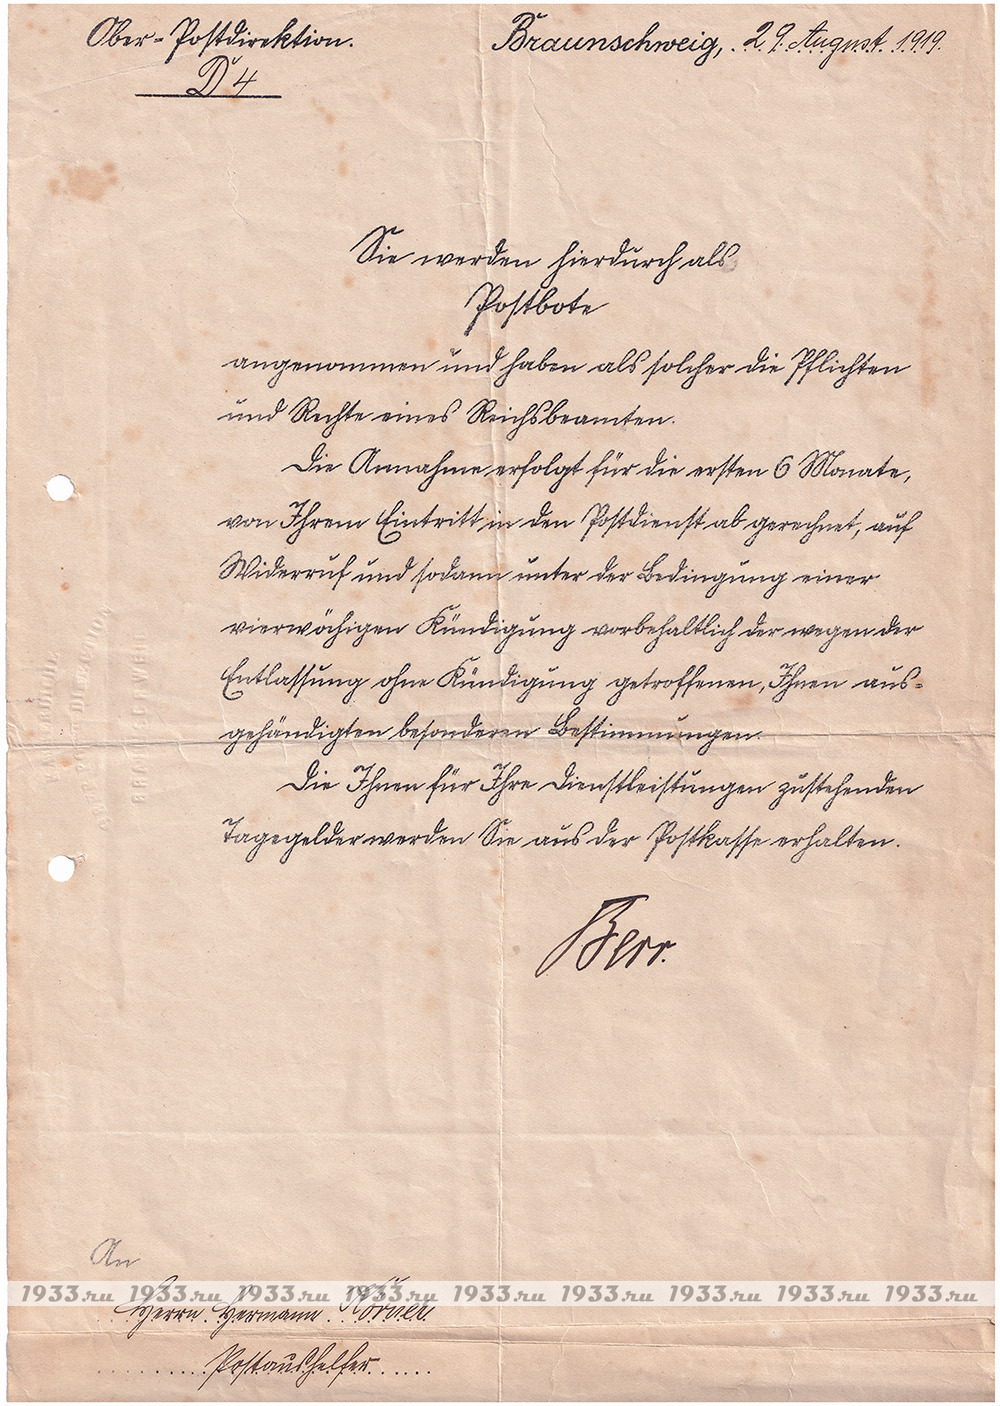 Ober-Postdirektion.
Braunschweig, 29. August 1919.
D 4
Sie werden hierdurch als
Postbote
angenommen und haben als solcher die Pflichten
und Rechte eines Reichsbeamten.
Die Annahme erfolgt für die ersten 6 Monate,
von Ihrem Eintritt in den Postdienst ab gerechnet, auf
Widerruf und sodann unter der Bedingung einer
vierwöchigen Kündigung vorbehaltlich der wegen der
Entlassung ohne Kündigung getroffenen, Ihnen aus=
gehändigten besonderen Bestimmungen.
Die Ihnen für Ihre Dienstleistungen zustehenden
Tagegelder werden Sie aus der Postkasse erhalten.
An
1933.ru 1933.ru 1933.ru 1933.ru 1933.ru 1933.ru 1933.ru 1933.ru 1933.ru
Herrn Hermann
Postaushelfer